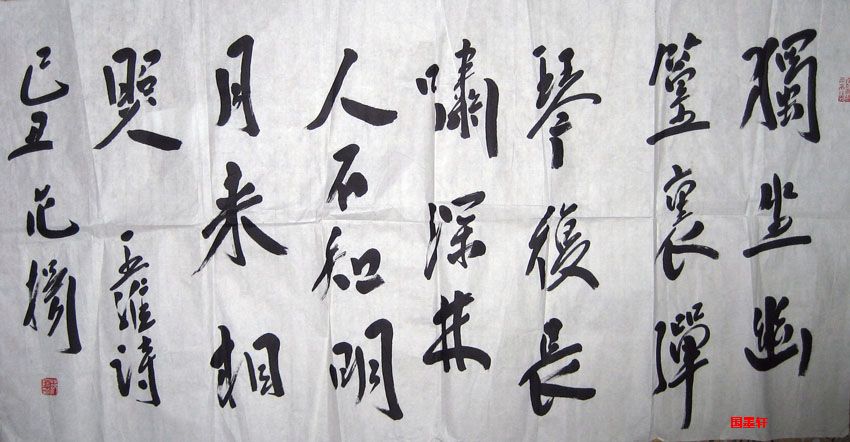 獨坐幽
篁裏彈
琴復長
嘯深林
人不知明
月来相
照 王維诗
己丑 范
国墨轩